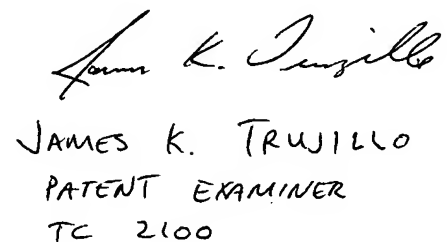 James K. Trujillo
JAMES K. TRUJILLO
PATENT EXAMINER
TC 2100